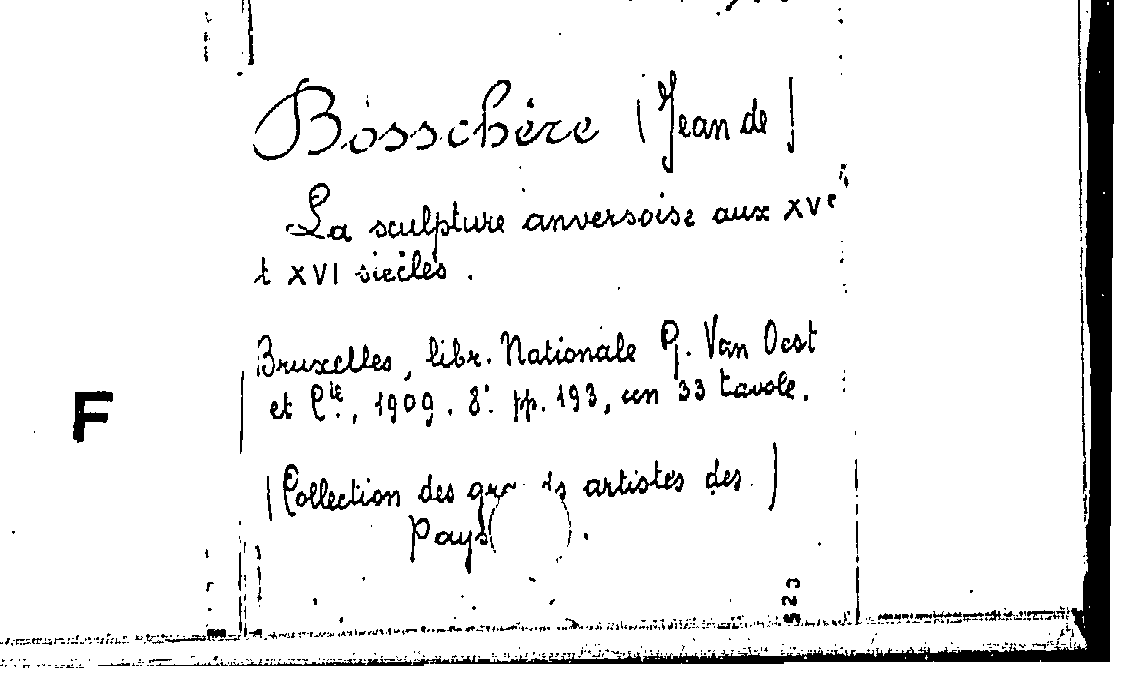 Bosschère (Jean de)
La sculpture anversoise aux XVe
t XVI siècles.
Bruxelles, libr. Nationale G. Van Oest
et Cie., 1909. 8°. pp. 193, con 33 tavole.
F
(Collection des artistes des)
Pays
523